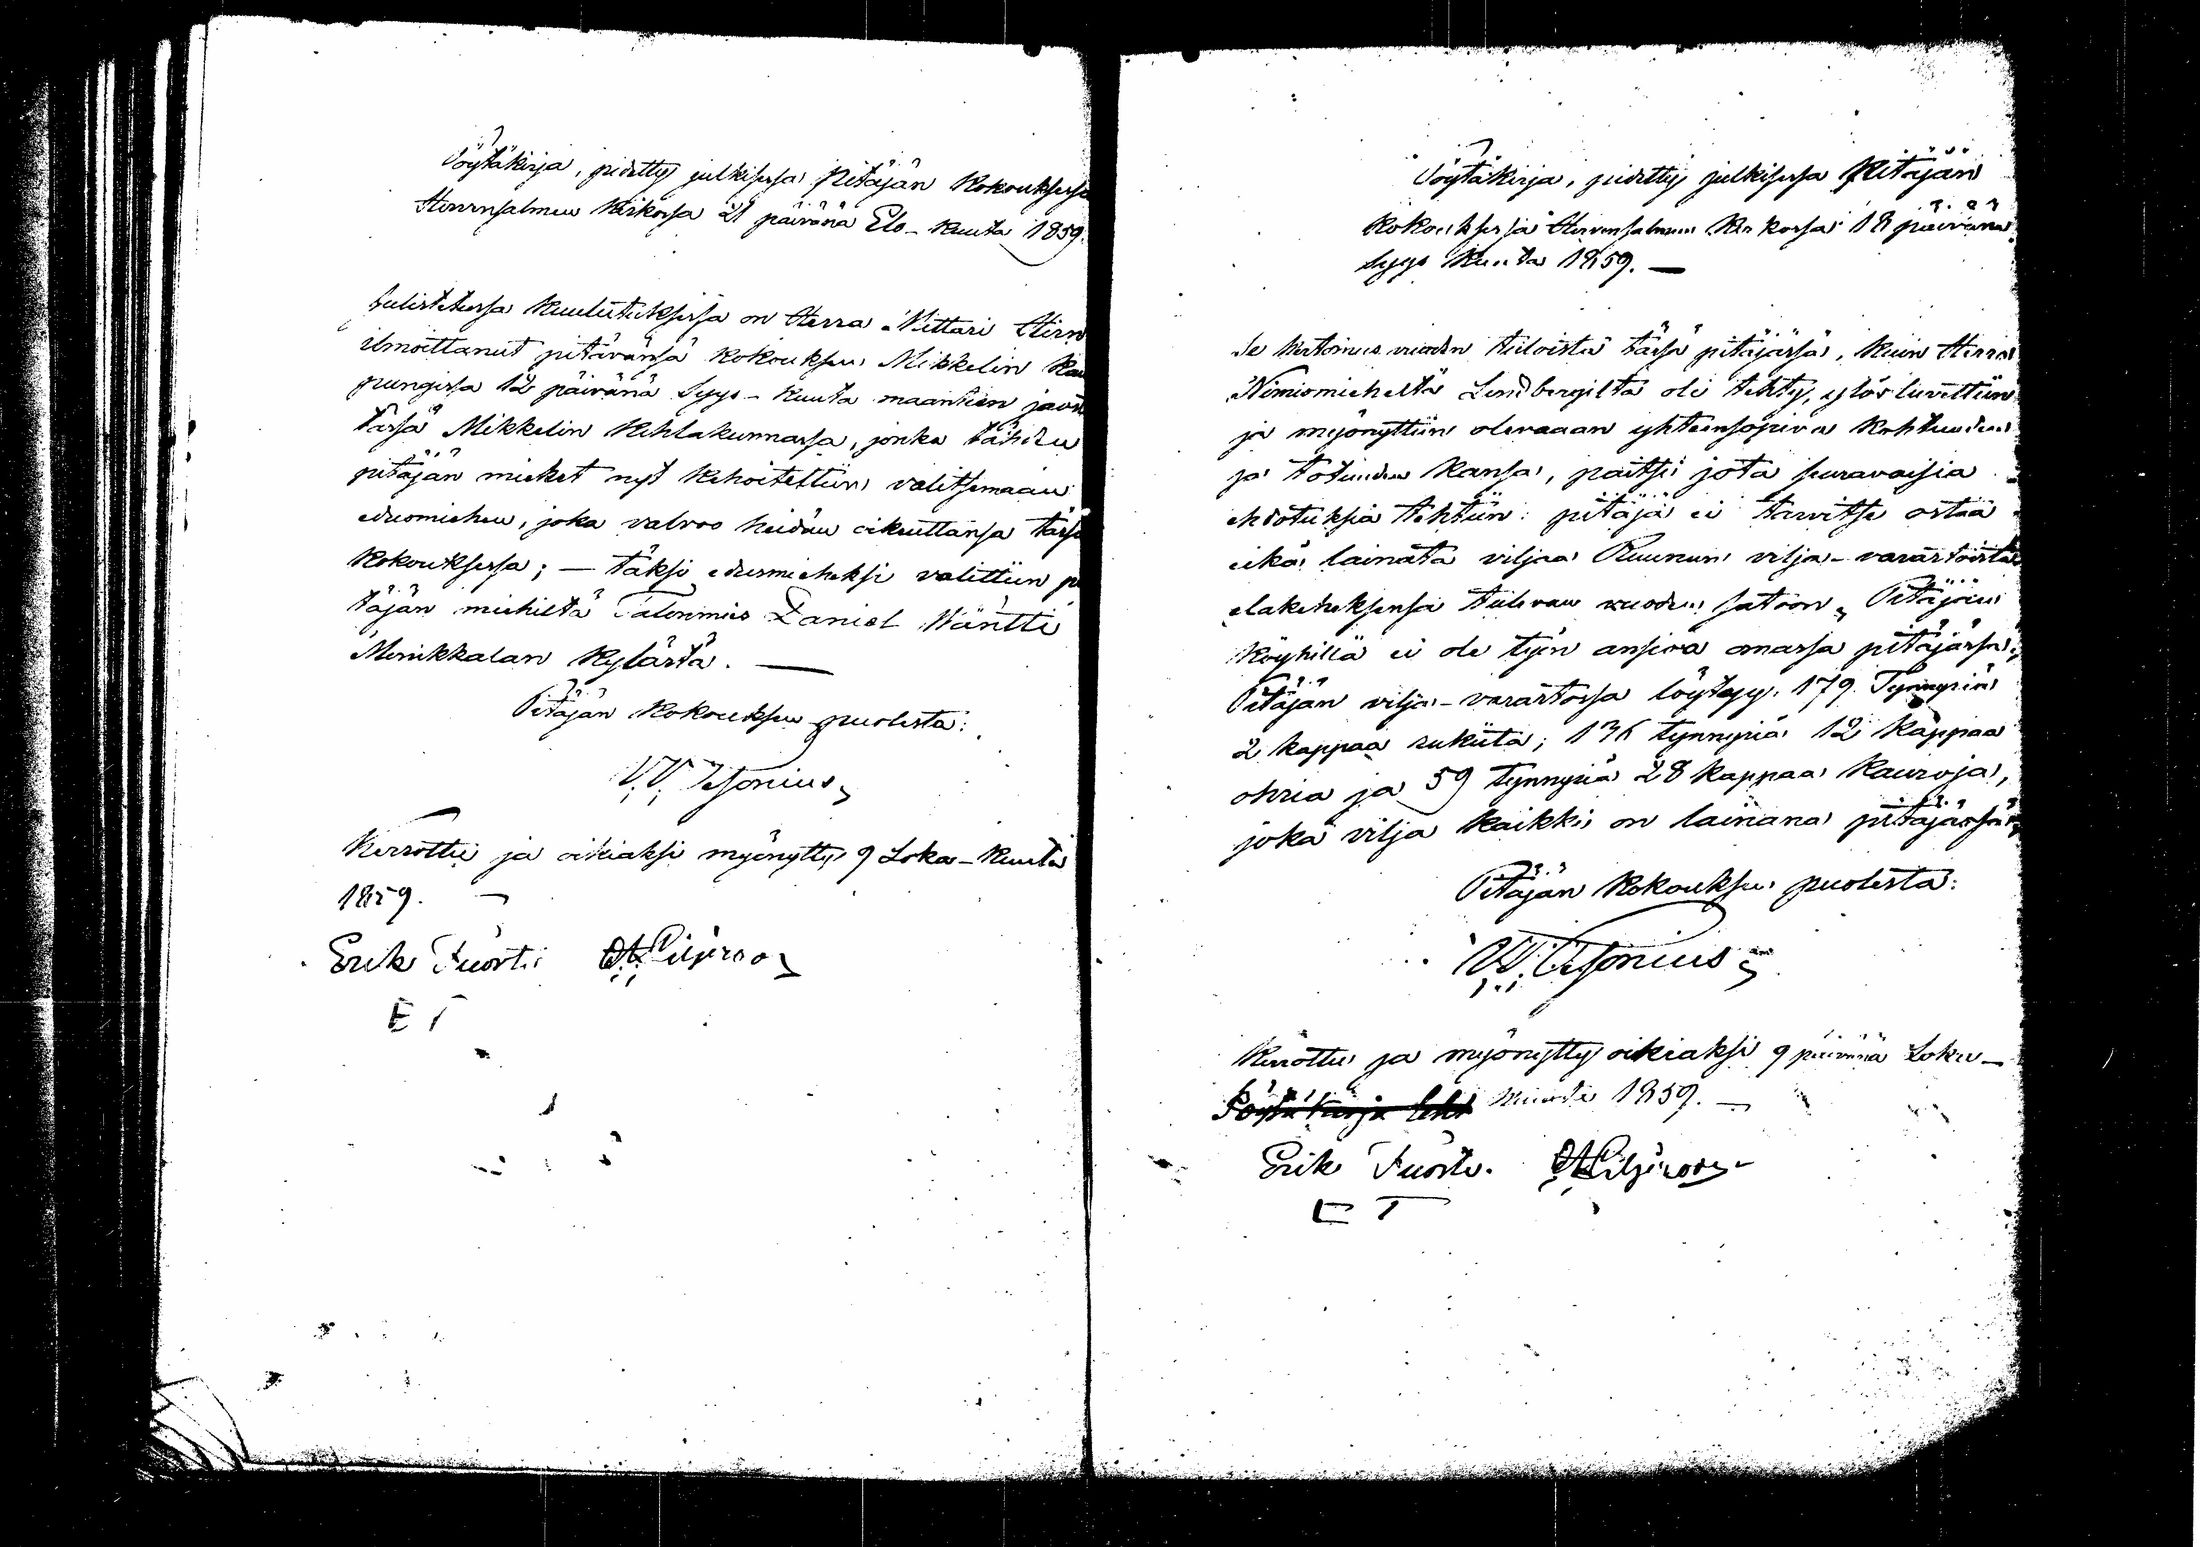 Pöytäkirja, pidetty julkisessa Pitäjän Kokouksessa
Hirvensalmen Kirkossa 21 päivänä Elo-Kuuta 1859.
Julistetussa Kuulutuksessa on Herra Mittari Hirn
ilmoittanut pitävänsä Kokouksen Mikkelin Kau
pungissa 12 päivänä Syys-Kuuta maantien jaon
tässä Mikkelin Kihlakunnassa, jonka tähden
pitäjän miehet nyt Kehoitettiin valitsemaan
edusmiehen, joka valvoo heidän oikeuttansa tässä
Kokouksessa; – täksi edusmieheksi valittiin pi
täjän miehiltä Talonmies Daniel Mäntti
Monikkalan Kylästä. —
Pitäjän Kokouksen puolesta:
W. Tesonius
Kerrottu ja oikiaksi myönytty 9 Loka-Kuuta
1859. —
Erik Tuorti
E T
Pöytäkirja, pidetty julkisessa Pitäjän
Kokouksessa Hirvensalmen Kirkossa 18 päivänä
Syys Kuuta 1859. —
Se Kertomus vuoden tuloista tässä pitäjässä, kuin Herra
Nimismieheltä Lindbergiltä oli tehty, ylös luvettiin
ja myönyttiin olevaan yhteensopiva Kohtuuden
ja totuuden Kansa, paitsi jota seuravaisia
ehdotuksia tehtiin: pitäjä ei tarvitse ostaa
eikä lainata viljaa Ruunun vilja-varastoista
elatuksensa tulevan vuoden satoon. Pitäjän
Köyhillä ei ole työn ansiota omassa pitäjässä.
Pitäjän vilja-varastossa löytyy 179 Tynnyriä
2 kappaa rukiita; 136 tynnyriä 12 Kappaa
ohria ja 59 tynnyriä 28 Kappaa Kauroja,
joka vilja Kaikki on lainana pitäjässä.
Pitäjän Kokouksen puolesta:
W. Tesonius
Kerrottu ja myönytty oikiaksi 9 päivänä Loka-
Pöytäkirja Kuuta 1859. —
Erik Tuorti.
E T